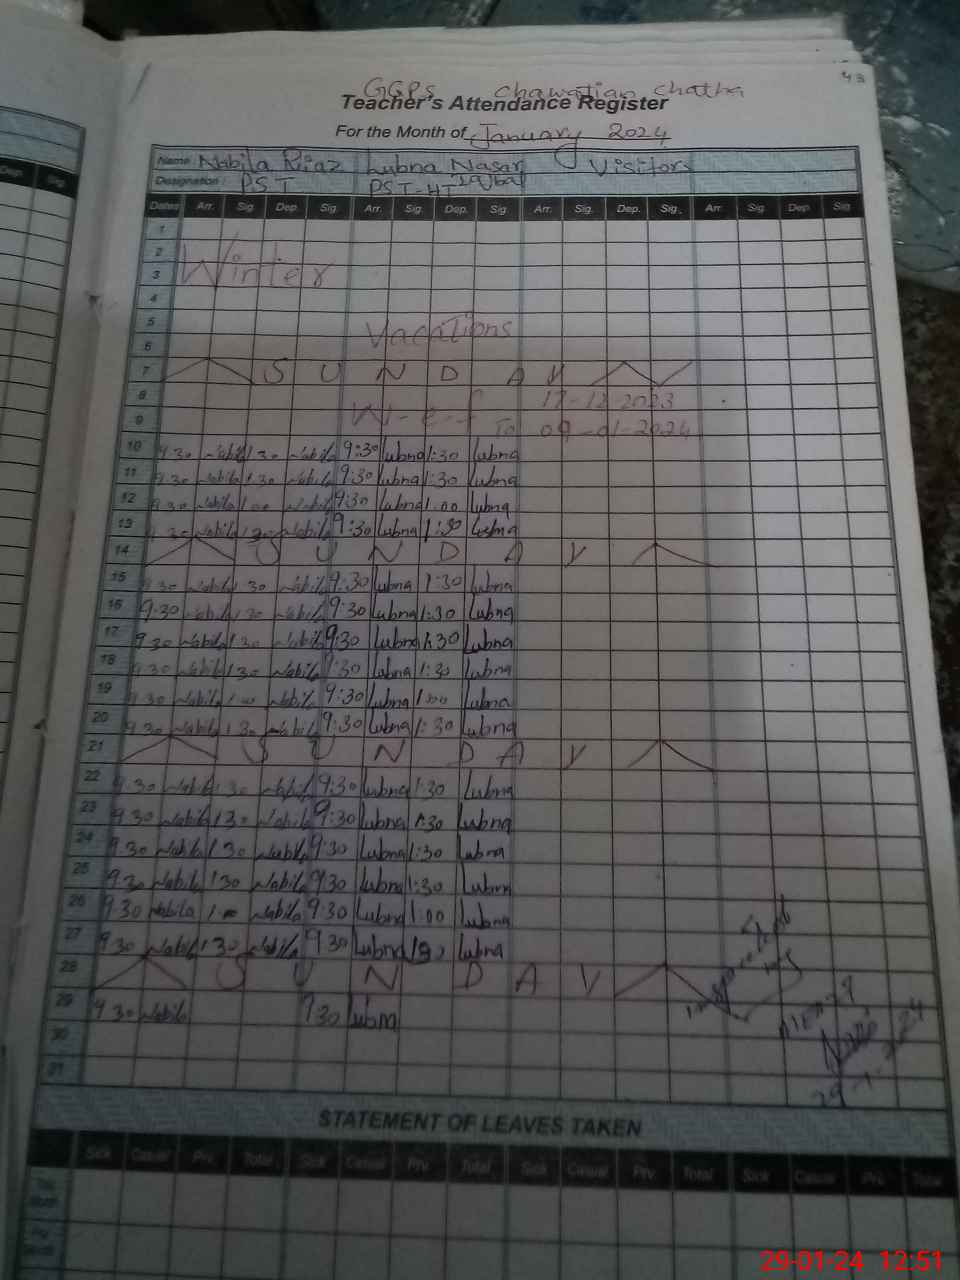 43
GGPS Chawatian Chatha
Teacher's Attendance Register
For the Month of January 2024
Name Nabila Riaz Lubna Nasar Visitors
Designation PST PST-HT Iqbal
Dates Arr. Sig. Dep. Sig. Arr. Sig. Dep. Sig. Arr. Sig. Dep. Sig. Arr. Sig. Dep. Sig.
1
2 Winter
3
4
5 Vacations
6
7 S U N D A Y
8 W-e-f 17-12-2023
9 To 09-01-2024
10 9.30 Nabila 1.30 Nabila 9:30 Lubna 1:30 Lubna
11 9.30 Nabila 1.30 Nabila 9:30 Lubna 1:30 Lubna
12 9.30 Nabila 1.00 Nabila 9:30 Lubna 1:00 Lubna
13 9.30 Nabila 1.30 Nabila 9:30 Lubna 1:30 Lubna
14 S U N D A Y
15 9.30 Nabila 1.30 Nabila 9:30 Lubna 1:30 Lubna
16 9.30 Nabila 1.30 Nabila 9:30 Lubna 1:30 Lubna
17 9.30 Nabila 1.30 Nabila 9:30 Lubna 1:30 Lubna
18 9.30 Nabila 1.30 Nabila 9:30 Lubna 1:30 Lubna
19 9.30 Nabila 1.00 Nabila 9:30 Lubna 1:00 Lubna
20 9.30 Nabila 1.30 Nabila 9:30 Lubna 1:30 Lubna
21 S U N D A Y
22 9.30 Nabila 1.30 Nabila 9:30 Lubna 1:30 Lubna
23 9.30 Nabila 1.30 Nabila 9:30 Lubna 1:30 Lubna
24 9.30 Nabila 1.30 Nabila 9:30 Lubna 1:30 Lubna
25 9.30 Nabila 1.30 Nabila 9:30 Lubna 1:30 Lubna
26 9.30 Nabila 1.00 Nabila 9:30 Lubna 1:00 Lubna
27 9.30 Nabila 1.30 Nabila 9.30 Lubna Lubna
28 S U N D A Y
29 9.30 Nabila 9.30 Lubna
30
31
29-1-24
STATEMENT OF LEAVES TAKEN
Sick Casual Prv. Total Sick Casual Prv. Total Sick Casual Prv. Total Sick Casual Prv. Total
29-01-24 12:51